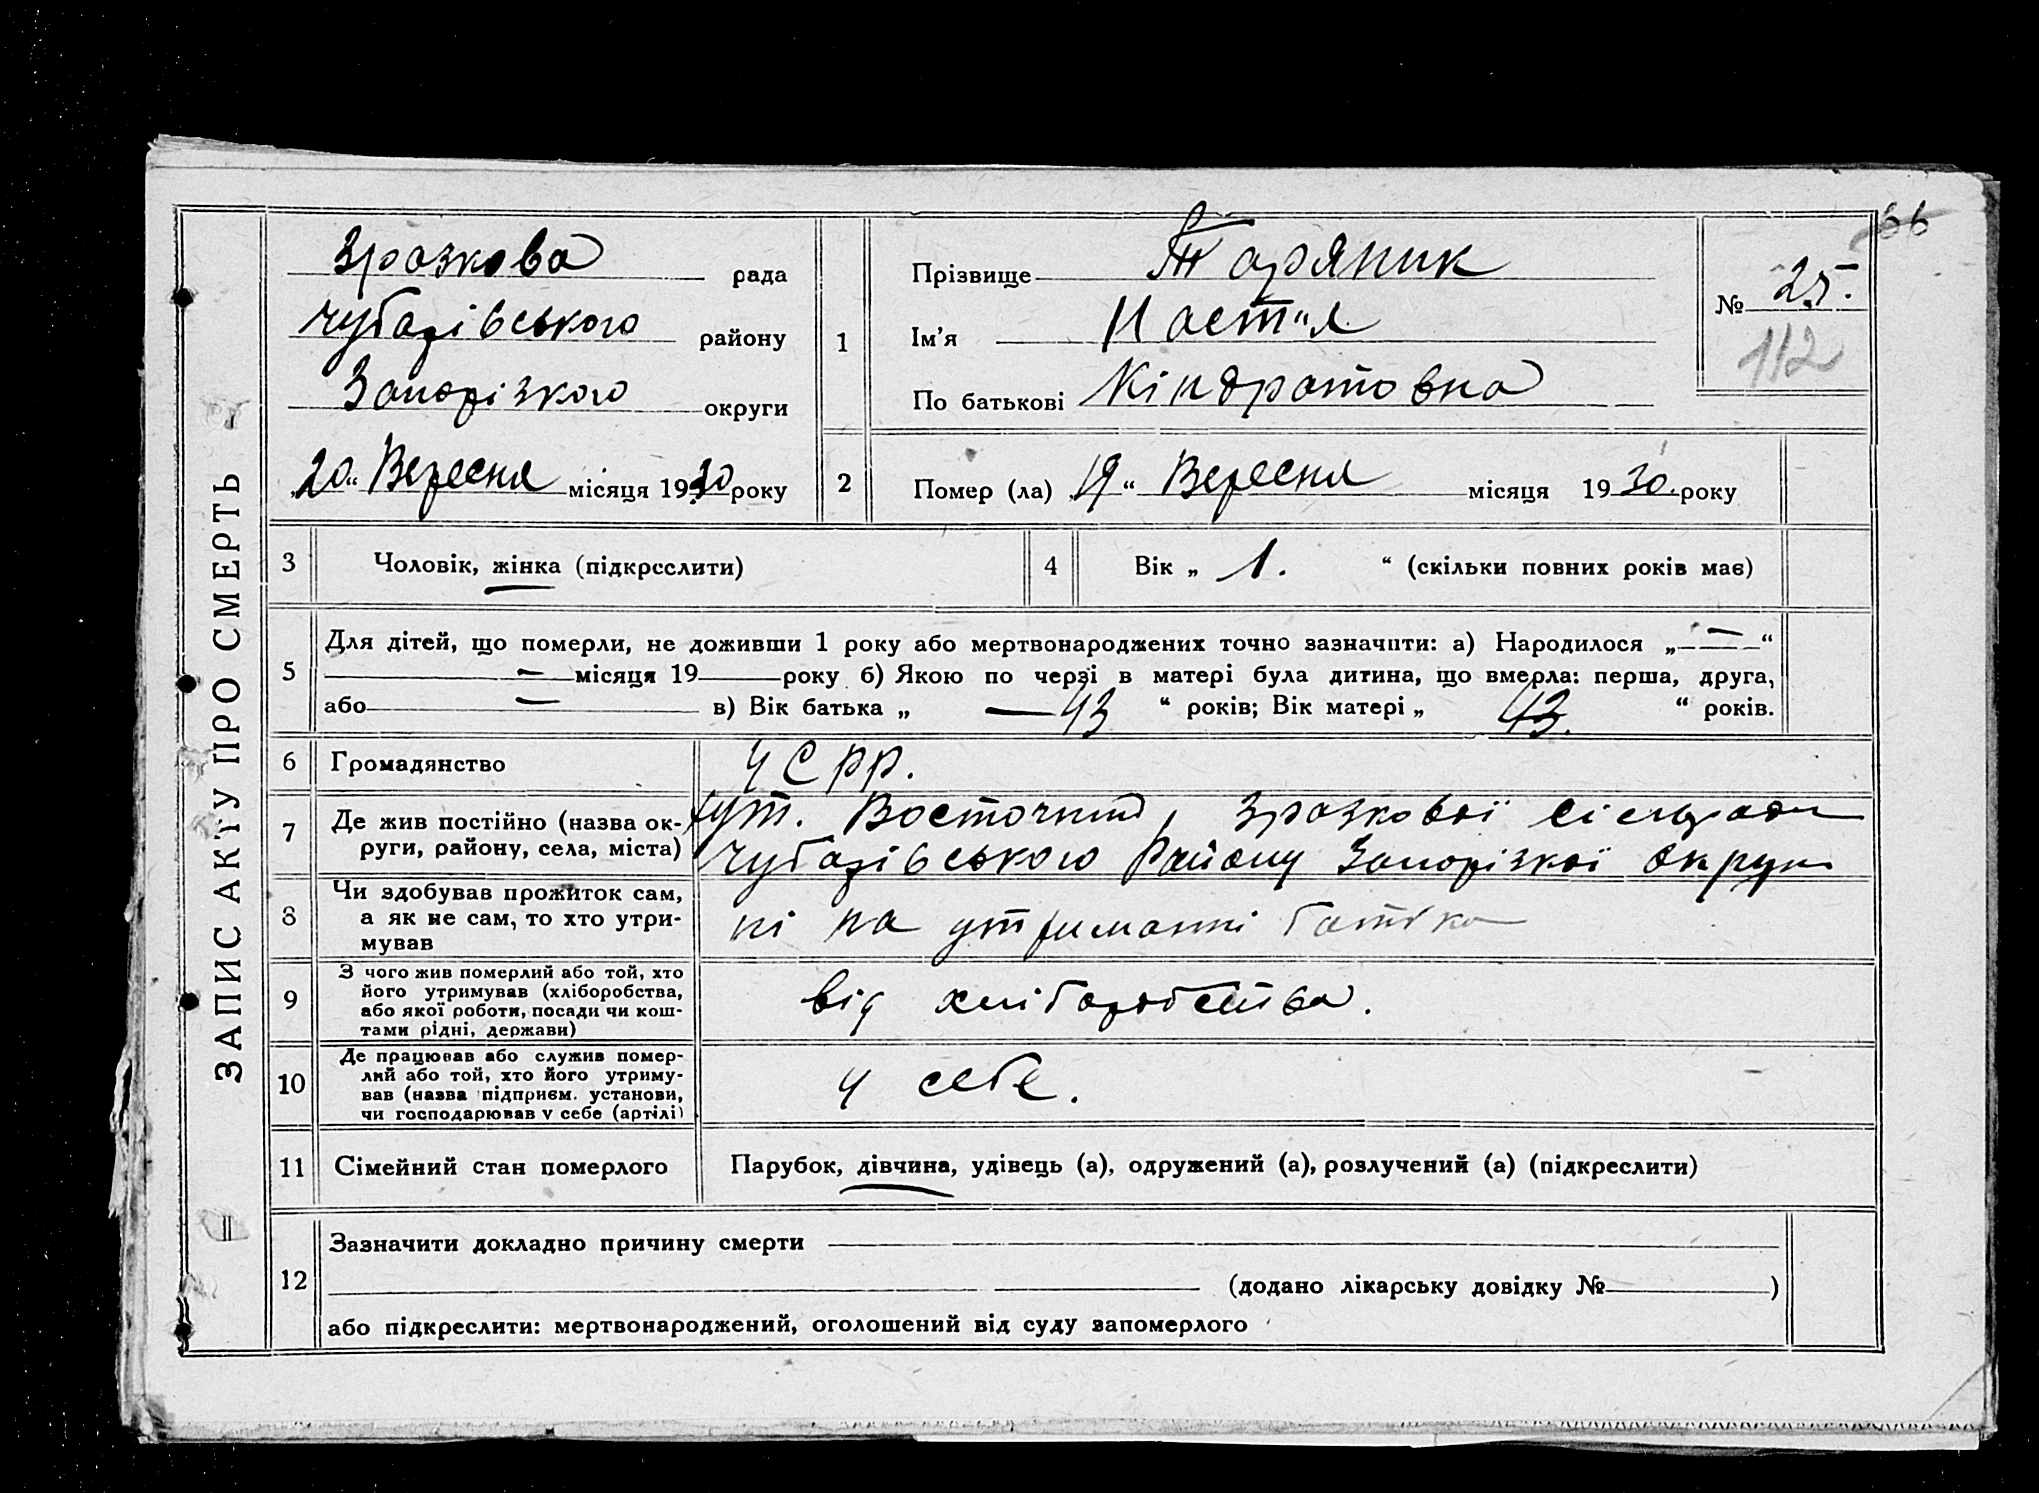 66
ЗАПИС АКТУ ПРО СМЕРТЬ
Зразкова рада
Чубарівського району
Запорізкого округи
„20“ Вересня місяця 1930 року
1
Прізвище Таряник
Ім'я Настя
По батькові Кіндратовна
№ 25.
112
2 Помер (ла) „19“ Вересня місяця 1930 року
3 Чоловік, жінка (підкреслити)
4 Вік „ 1. “ (скільки повних років має)
5 Для дітей, що померли, не доживши 1 року або мертвонароджених точно зазначити: а) Народилося „ — “
— місяця 19 року б) Якою по черзі в матері була дитина, що вмерла: перша, друга,
або — в) Вік батька „ — 43 “ років; Вік матері „ 43. “ років.
6 Громадянство УСРР.
7 Де жив постійно (назва ок-
руги, району, села, міста)
хут. Восточний, Зразкової сільради
Чубарівського Району Запорізкої округи
8 Чи здобував прожиток сам,
а як не сам, то хто утри-
мував
ні на утриманні батька
9 З чого жив померлий або той, хто
його утримував (хліборобства,
або якої роботи, посади чи кош-
тами рідні, держави)
від хліборобства.
10 Де працював або служив помер-
лий або той, хто його утриму-
вав (назва підприєм. установи,
чи господарював у себе (артілі)
у себе.
11 Сімейний стан померлого Парубок, дівчина, удівець (а), одружений (а), розлучений (а) (підкреслити)
12 Зазначити докладно причину смерти
(додано лікарську довідку № )
або підкреслити: мертвонароджений, оголошений від суду запомерлого